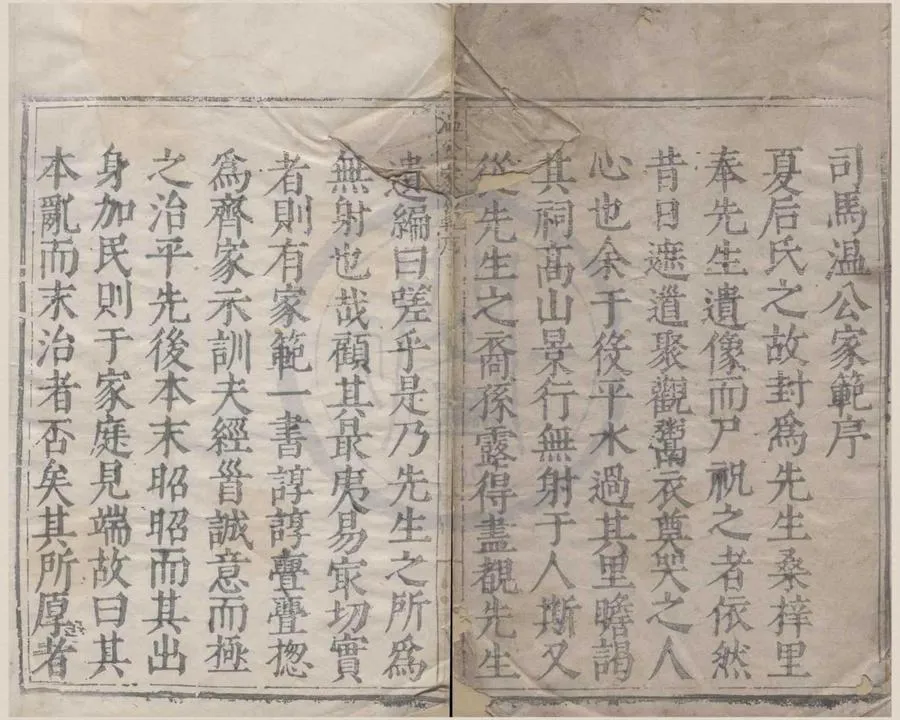 司馬温公家範序
夏后氏之故封爲先生桑梓里
奉先生遺像而尸祝之者依然
昔日遮道聚觀鬻衣奠哭之人
心也余于役平水過其里瞻謁
其祠高山景行無射于人斯又
從先生之裔孫露得盡覩先生
遺編曰嗟乎是乃先生之所爲
無射也哉顧其最夷易㝡切實
者則有家範一書諄諄亹亹揔
爲齊家示訓夫經首誠意而極
之治平先後本末昭昭而其出
身加民則于家庭見端故曰其
本亂而末治者否矣其所厚者